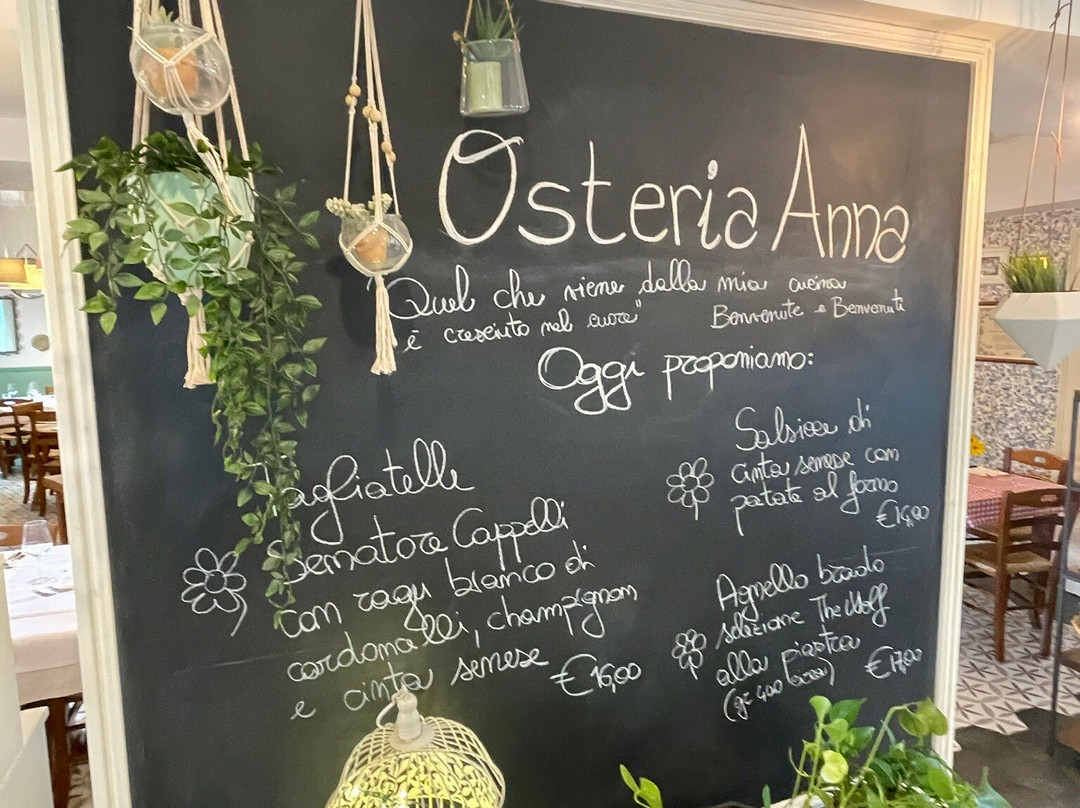 Osteria Anna
Quel che viene dalla mia cucina
è cresciuto nel cuore"
Benvenute e Benvenuti
Oggi proponiamo:
agliatelle
Senatore Cappelli
con ragu bianco di
cardoncelli, champignon
e cinta senese €16,00
Salsicce di
cinta senese con
patate al forno
€14,00
Agnello brado
selezione The Wolf
alla piastra
€17,00